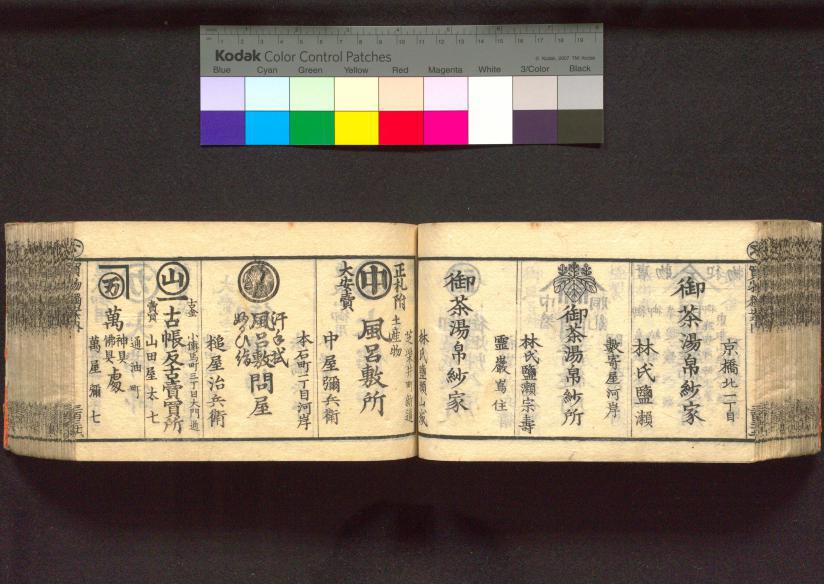 Kodak Color Control Patches
© Kodak, 2007 TM: Kodak
Blue Cyan Green Yellow Red Magenta White 3/Color Black
京橋北一丁目
御茶湯帛紗家
林氏鹽瀬
數寄屋河岸
御茶湯帛紗所
林氏鹽瀬宗壽
靈巖嶌住
御茶湯帛紗家
林氏鹽瀬山城
芝柴井町
正札附
土産物
中
風呂敷所
大安賣
中屋彌兵衛
本石町二丁目河岸
風呂敷問屋
槌屋治兵衛
山
古帳反古賣買所
山田屋太七
通油町
万
萬
神具
佛具
處
萬屋彌七